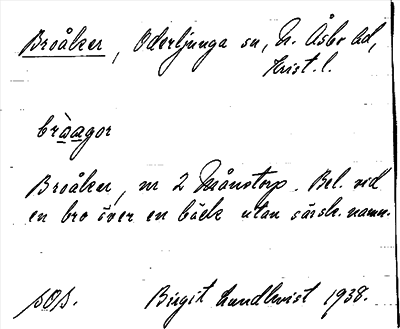 Broåker, Oderljunga sn, N. Åsbo hd,
Krist. l.
bråagor
Broåker, nr 2 Månstorp. Bel. vid
en bro över en bäck utan särsk. namn.
Birgit Lundkvist 1938.